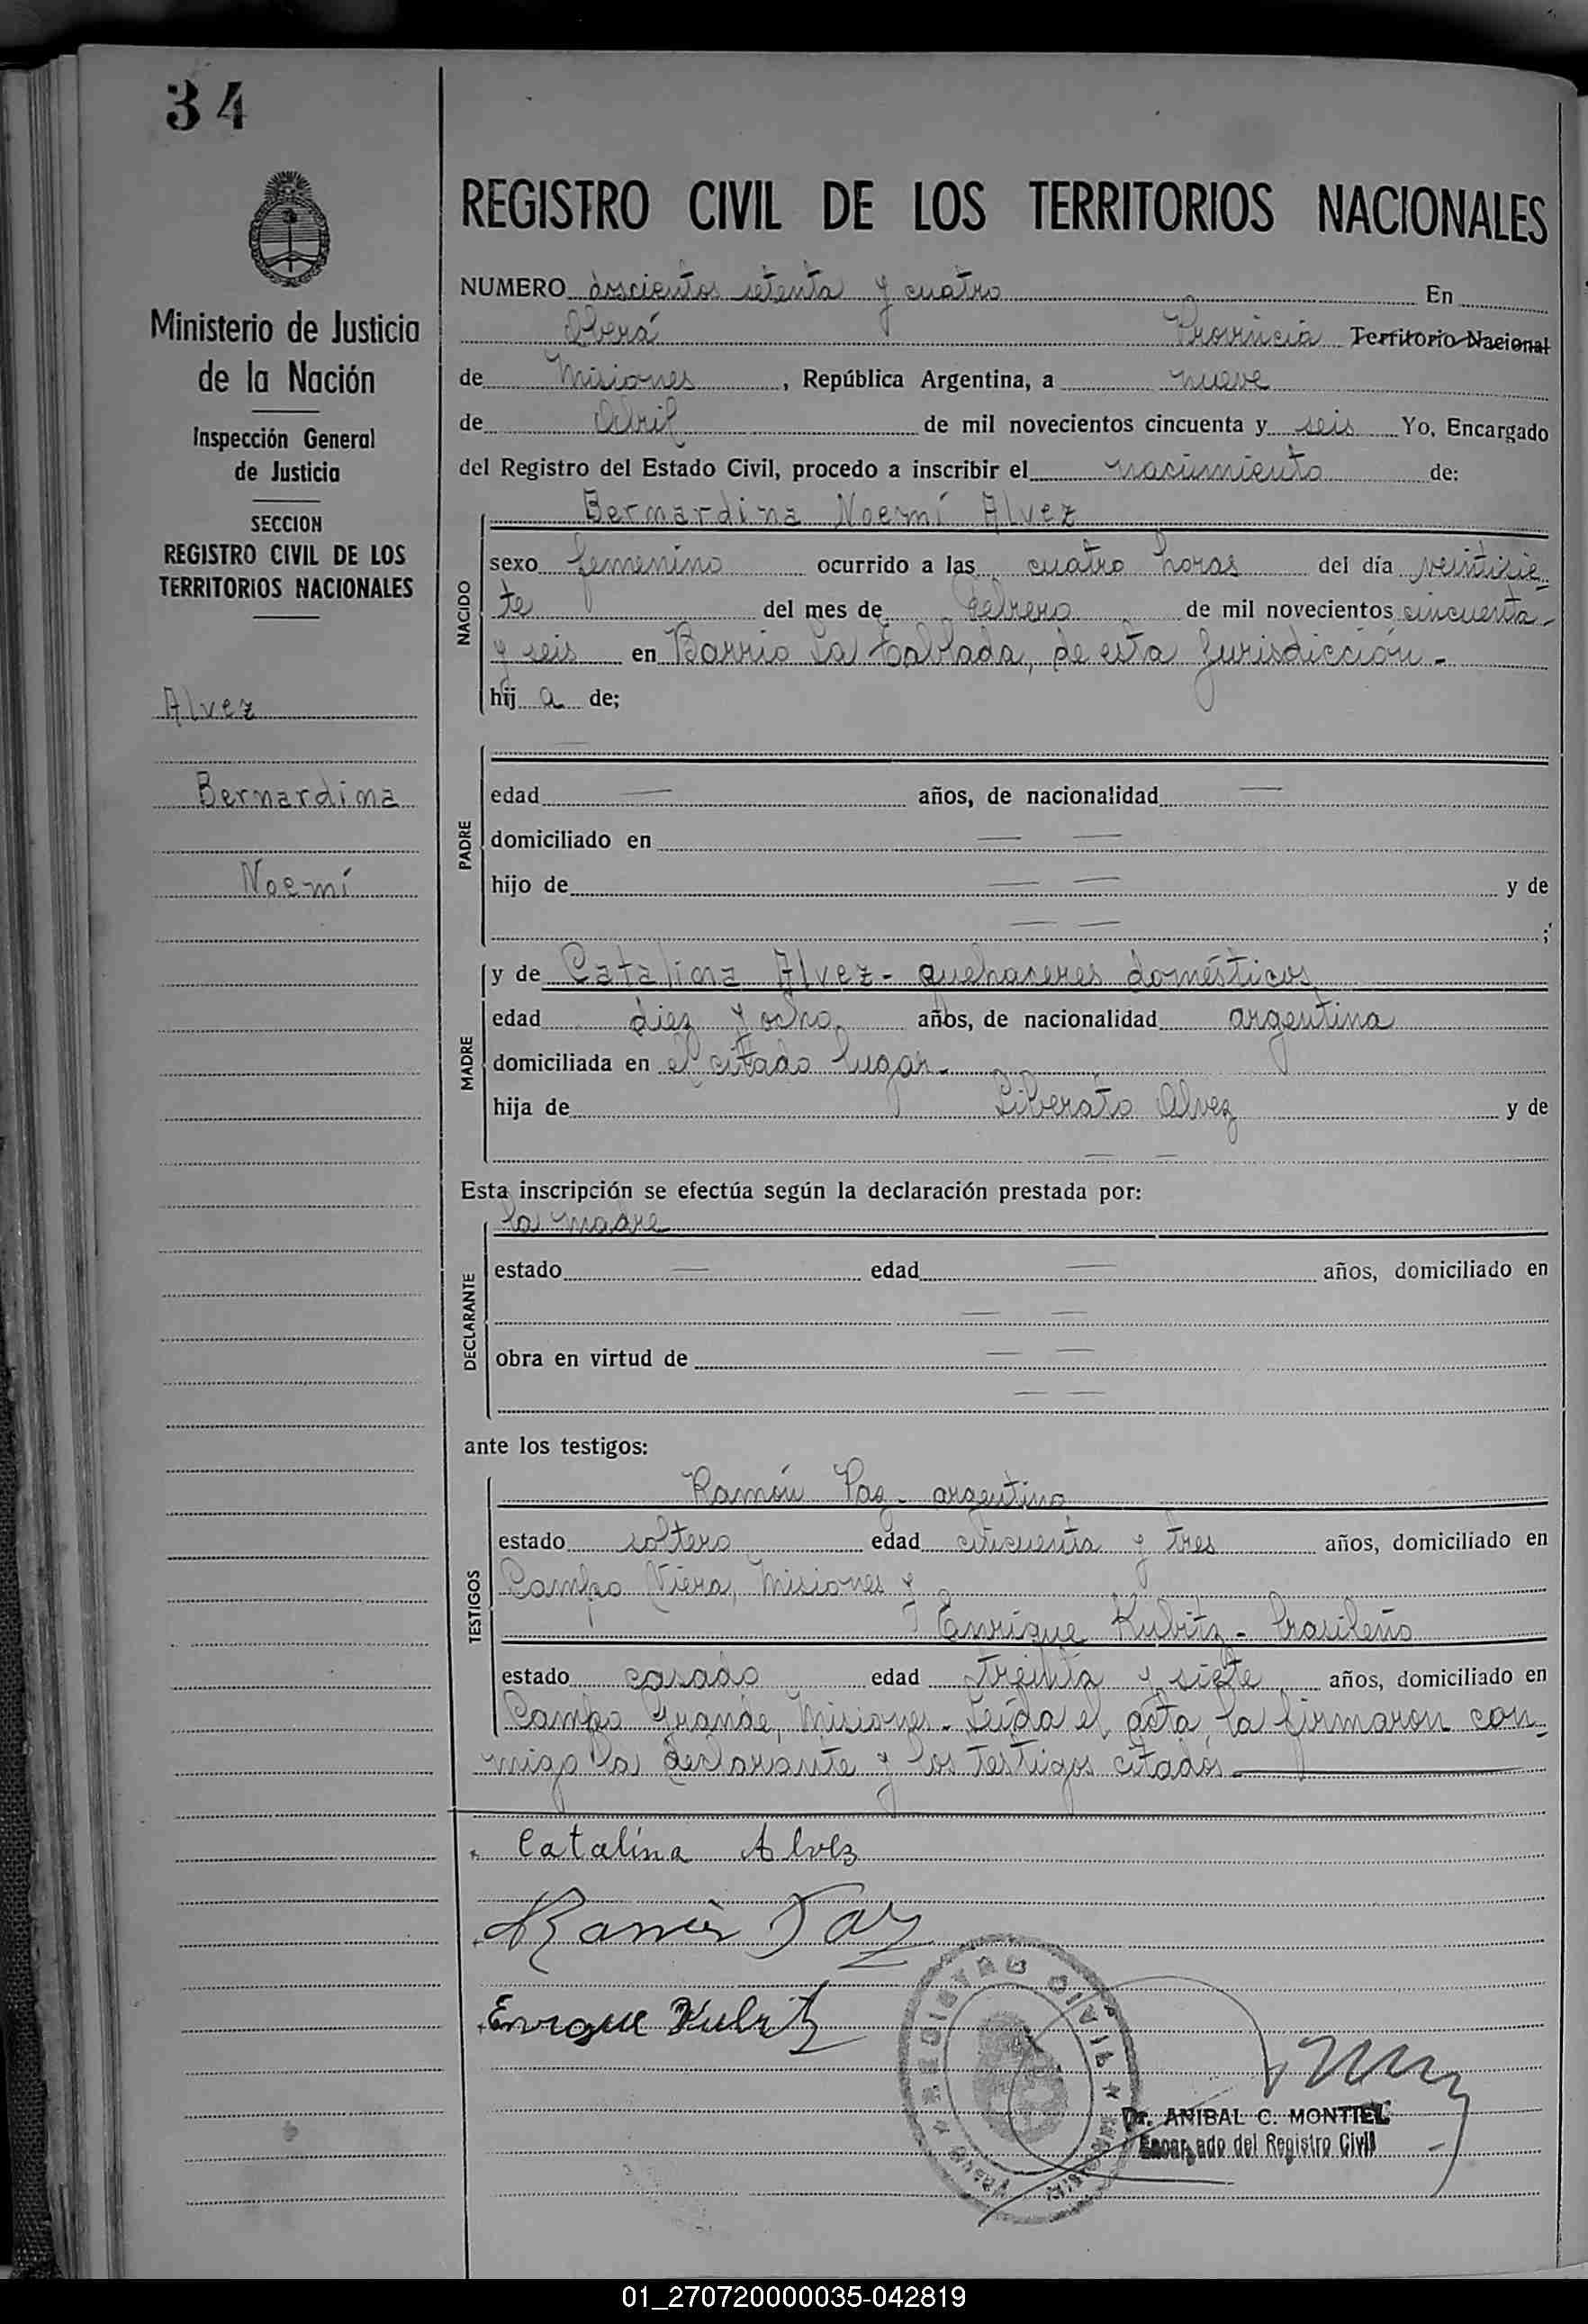 34
Ministerio de Justicia
de la Nación
Inspección General
de Justicia
SECCION
REGISTRO CIVIL DE LOS
TERRITORIOS NACIONALES
Alvez
Bernardina
Noemí
REGISTRO CIVIL DE LOS TERRITORIOS NACIONALES
NUMERO doscientos setenta y cuatro En
Oberá Provincia Territorio Nacional
de Misiones, República Argentina, a nueve
de Abril de mil novecientos cincuenta y seis Yo, Encargado
del Registro del Estado Civil, procedo a inscribir el nacimiento de:
Bernardina Noemí Alvez
NACIDO
sexo femenino ocurrido a las cuatro horas del día veintisie-
te del mes de febrero de mil novecientos cincuenta-
y seis en Barrio La Tablada, de esta Jurisdicción.-
hij a de;
PADRE
edad — años, de nacionalidad —
domiciliado en — —
hijo de — — y de
— — ;
MADRE
y de Catalina Alvez- quehaceres domésticos
edad diez y ocho años, de nacionalidad argentina
domiciliada en el citado lugar.
hija de Liberato Alvez y de
— —
Esta inscripción se efectúa según la declaración prestada por:
la madre
DECLARANTE
estado — edad — años, domiciliado en
— —
obra en virtud de — —
— —
ante los testigos:
TESTIGOS
Ramón Paz- argentino
estado soltero edad cincuenta y tres años, domiciliado en
Campo Viera, Misiones y
Enrique Kubitz- brasileño
estado casado edad treinta y siete años, domiciliado en
Campo Grande, Misiones.- Leída el acta la firmaron con-
migo la declarante y los testigos citados.-
Catalina Alvez
Ramón Paz
Enrique Kubitz
REGISTRO CIVIL
Dr. ANIBAL C. MONTIEL
Encargado del Registro Civil
01_270720000035-042819